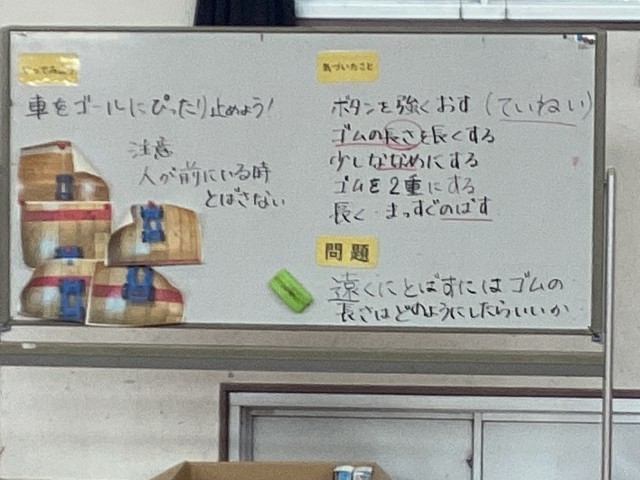 やってみよう
車をゴールにぴったり止めよう！
注意
人が前にいる時
とばさない
気づいたこと
ボタンを強くおす（ていねい）
ゴムの長さを長くする
少しななめにする
ゴムを2重にする
長く まっすぐのばす
問題
遠くにとばすにはゴムの
長さはどのようにしたらいいか